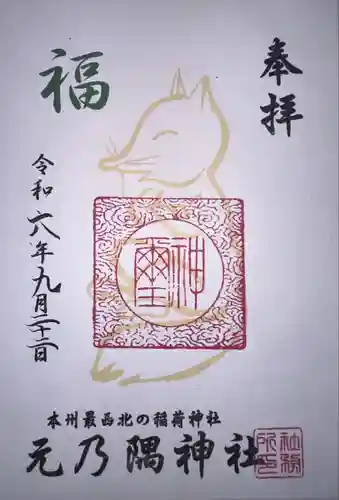 奉拝
福
令和六年九月二十二日
神璽
本州最西北の稲荷神社
元乃隅神社
社務所印